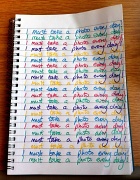 I must take a photo every day!
I must take a photo every day!
I must take a photo every day!
I must take a photo every day!
I must take a photo every day!
I must take a photo every day!
I must take a photo every day!
I must take a photo every day!
I must take a photo every day!
I must take a photo every day!
I must take a photo every day!
I must take a photo every day!
I must take a photo every day!
I must take a photo every day!
I must take a photo every day!
I must take a photo every day!
I must take a photo every day!
I must take a photo every day!